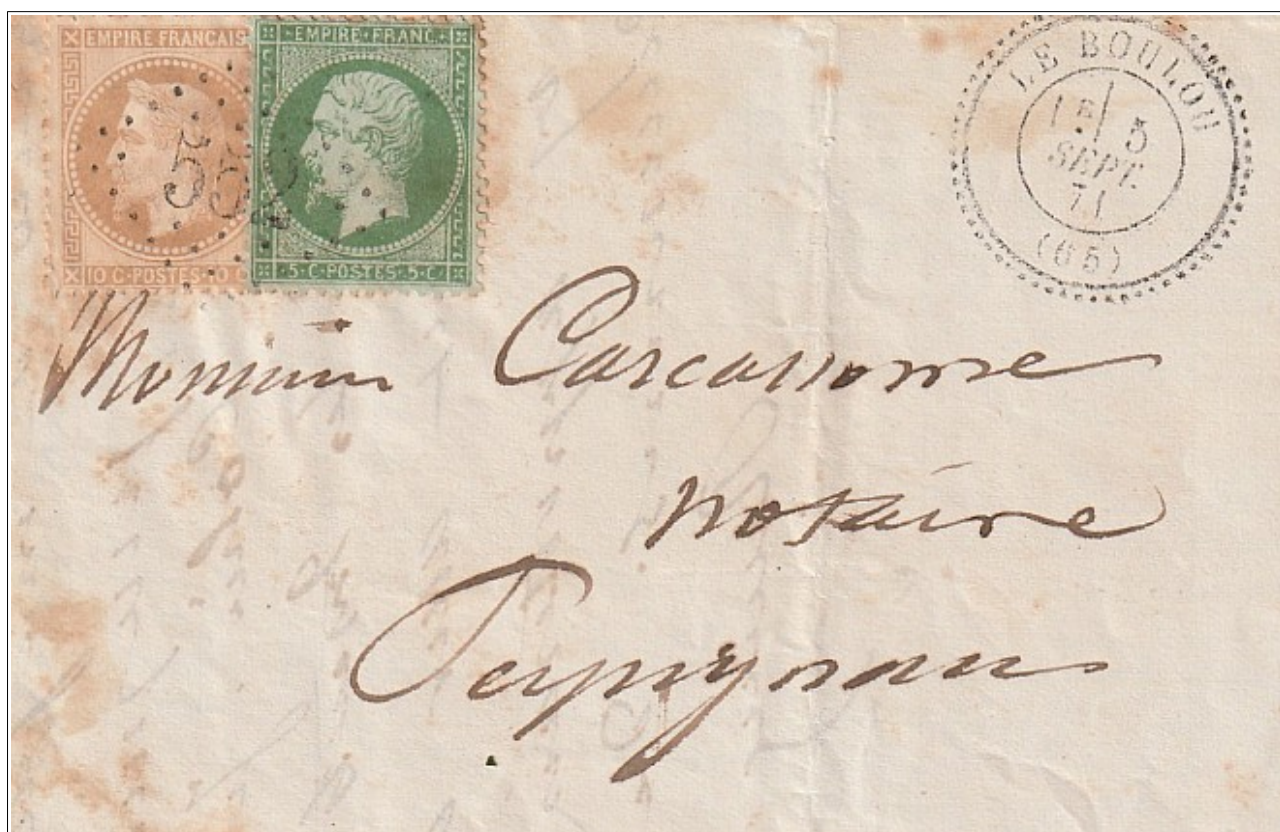 EMPIRE FRANÇAIS
10 C·POSTES·10 C
·EMPIRE·FRANC·
·5·C·POSTES·5·C·
LE BOULOU
5
SEPT.
71
(65)
Monsieur Carcassonne
notaire
Perpignan